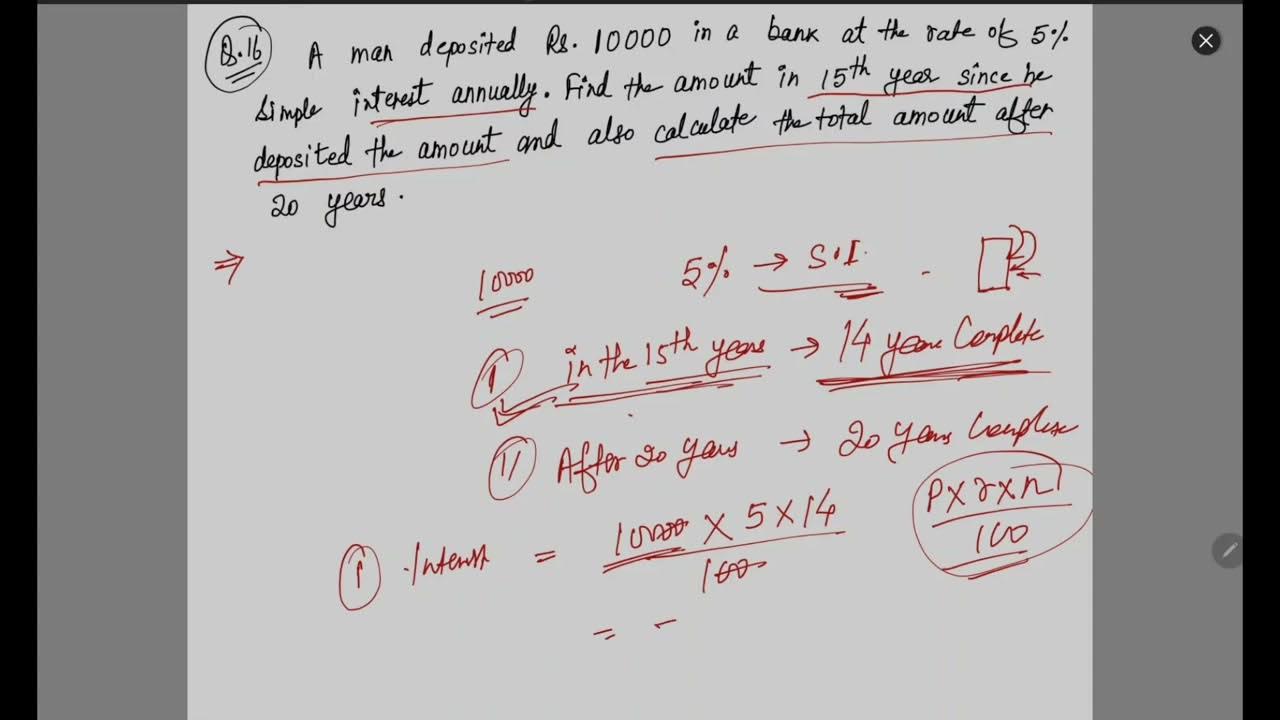 Q.16 A man deposited Rs. 10000 in a bank at the rate of 5%
simple interest annually. Find the amount in 15th year since he
deposited the amount and also calculate the total amount after
20 years.
⇒
10000 5% → S.I.
I in the 15th years → 14 years Complete
II After 20 years → 20 years Complete
P×r×n
100
I Interest = 10000 × 5 × 14
100
= -